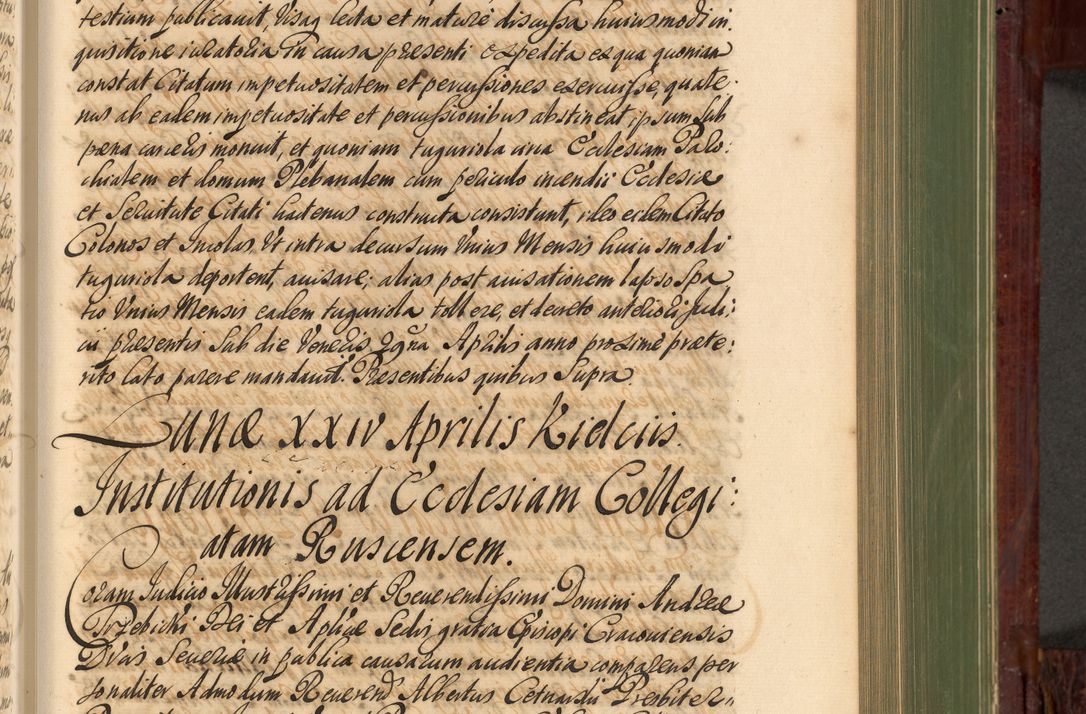 testium publicauit, Visaq lecta et mature discussa huiusmodi in
quisitione iuratoria in causa presenti expedita ex qua quoniam
constat Citatum impetuositatem et percussiones exercuisse, quate:
nus ab eadem impetuositate et percussionibus abstineat, ipsum Sub
pœna carceris monuit, et quoniam tuguriola circa Ecclesiam Paro:
chialem et domum Plebanalem cum periculo incendii Ecclesiæ
et Seruitute Citati hactenus constructa consistunt, ideo eidem Citato
Colonos et Incolas Vt intra decursum Vnius Mensis huiusmodi
tuguriola deportent, auisare; alias post auisationem lapso Spa
tio Vnius Mensis eadem tuguriola tollere, et decreto anteriori Judi:
cii presentis Sub die Veneris 29na Aprilis anno proxime præte:
rito lato parere mandauit. Præsentibus quibus Supra.
Lunæ XXIV Aprilis Kielciis.
Institutionis ad Ecclesiam Collegi:
atam Rusiensem.
Coram Iudicio Illustrissimi et Reuerendissimi Domini Andreæ
Trzebicki Dei et Aplicæ Sedis gratia Episcopi Cracouiensis
Ducis Seueriæ in publica causarum audientia comparens per
sonaliter Admodum Reuerend Albertus Cetnarski Presbiter